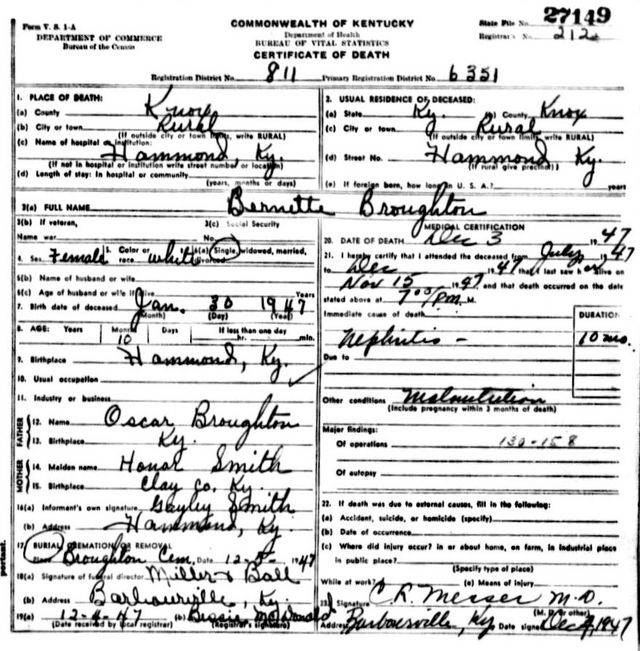 Form V. S. 1-A
DEPARTMENT OF COMMERCE
Bureau of the Census
COMMONWEALTH OF KENTUCKY
Department of Health
BUREAU OF VITAL STATISTICS
CERTIFICATE OF DEATH
State File No. 27149
Registrar's No. 212
Registration District No. 811 Primary Registration District No. 6351
1. PLACE OF DEATH:
(a) County Knox
(b) City or town Rural
(If outside city or town limits, write RURAL)
(c) Name of hospital or institution:
Hammond, Ky.
(If not in hospital or institution write street number or location)
(d) Length of stay: In hospital or community
(years, months or days)
2. USUAL RESIDENCE OF DECEASED:
(a) State Ky. (b) County Knox
(c) City or town Rural
(If outside city or town limits, write RURAL)
(d) Street No. Hammond Ky.
(If rural give precinct)
(e) If foreign born, how long in U. S. A.? years
3(a) FULL NAME Bernette Broughton
3(b) If veteran, 3(c) Social Security
Name war No.
4. Sex Female 5. Color or race white 6(a) Single, widowed, married, divorced
6(b) Name of husband or wife
6(c) Age of husband or wife if alive Years
7. Birth date of deceased Jan. 30 1947
(Month) (Day) (Year)
8. AGE: Years Months Days If less than one day
10 hr. min.
9. Birthplace Hammond, Ky.
10. Usual occupation
11. Industry or business
FATHER
12. Name Oscar Broughton
13. Birthplace Ky.
MOTHER
14. Maiden name Honar Smith
15. Birthplace Clay Co. Ky.
16(a) Informant's own signature Gayley Smith
(b) Address Hammond, Ky
17 BURIAL, CREMATION, OR REMOVAL
Broughton Cem. Date 12-5- 1947
18(a) Signature of funeral director Miller & Ball
(b) Address Barbourville, Ky.
19(a) 12-4-47 (b) Bessie McDonald
(Date received by local registrar) (Registrar's signature)
MEDICAL CERTIFICATION
20. DATE OF DEATH Dec 3 1947
21. I hereby certify that I attended the deceased from July 1947
to Dec 1947 that I last saw her alive on
Nov 15 1947 and that death occurred on the date
stated above at 7 00/PM M.
Immediate cause of death DURATION
Nephritis - 10 mo.
Due to
Other conditions Malnutrition
(Include pregnancy within 3 months of death)
Major findings:
Of operations 130-158
Of autopsy
22. If death was due to external causes, fill in the following:
(a) Accident, suicide, or homicide (specify)
(b) Date of occurrence
(c) Where did injury occur? in or about home, on farm, in industrial place
in public place?
(Specify type of place)
While at work? (e) Means of injury
23. Signature C. R. Messer M.D.
(M. D. or other)
Address Barbourville, Ky Date signed Dec 4, 1947
portant.